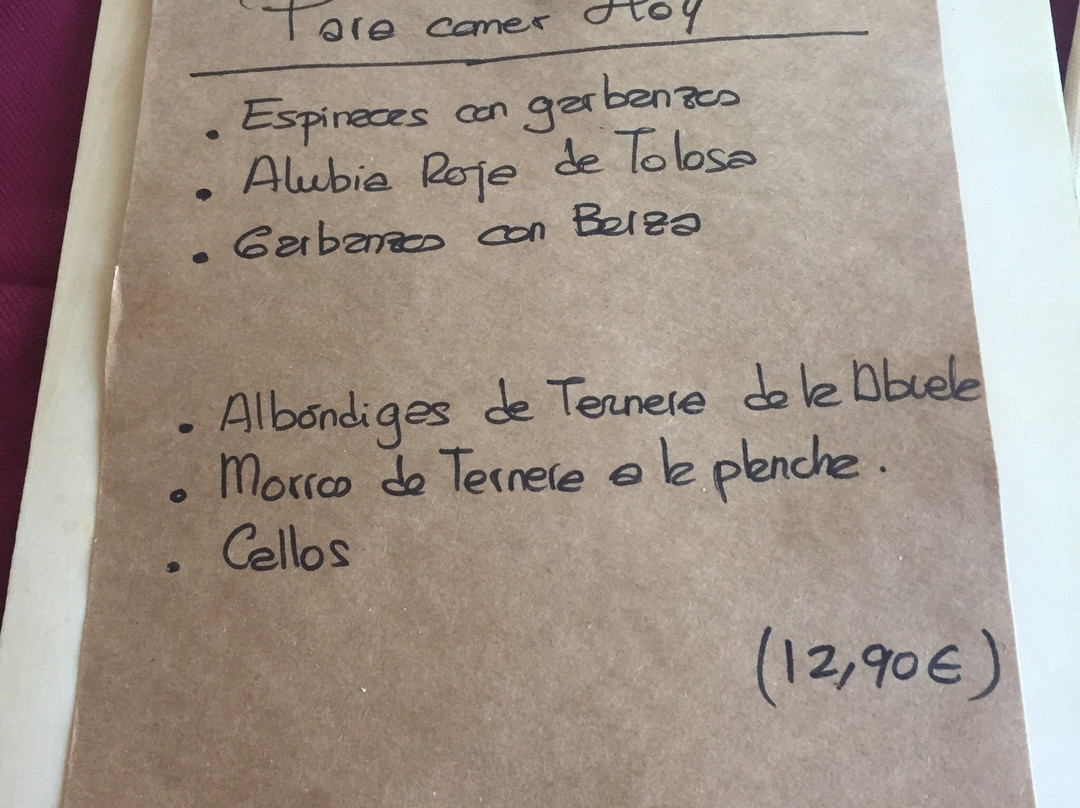 Para comer Hoy
. Espinacas con garbanzos
. Alubia Roja de Tolosa
. Garbanzos con Berza
. Albóndigas de Ternera de la Abuela
. Morro de Ternera a la plancha.
. Callos
(12,90€)